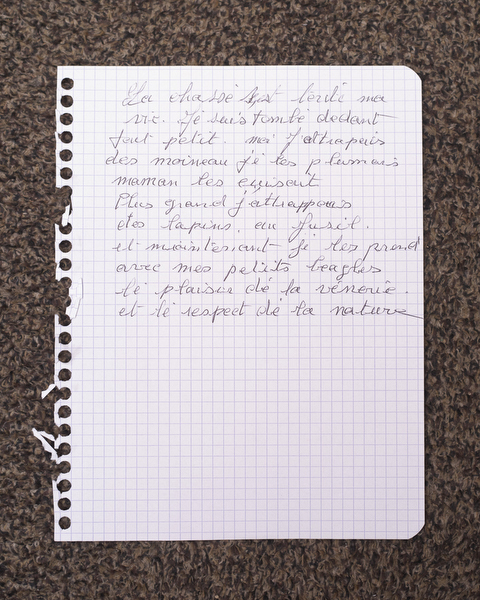 La chasse est toute ma
vie. Jé suis tombé dedant
tout petit. moi J'attrapais
des moineau jé les plumais
maman les cuisait
Plus grand j'attrappais
des lapins. au fusil.
et maintenant je les prend
avec mes petits beagles
lé plaisir dé la vénerie.
et lé respect dé la nature